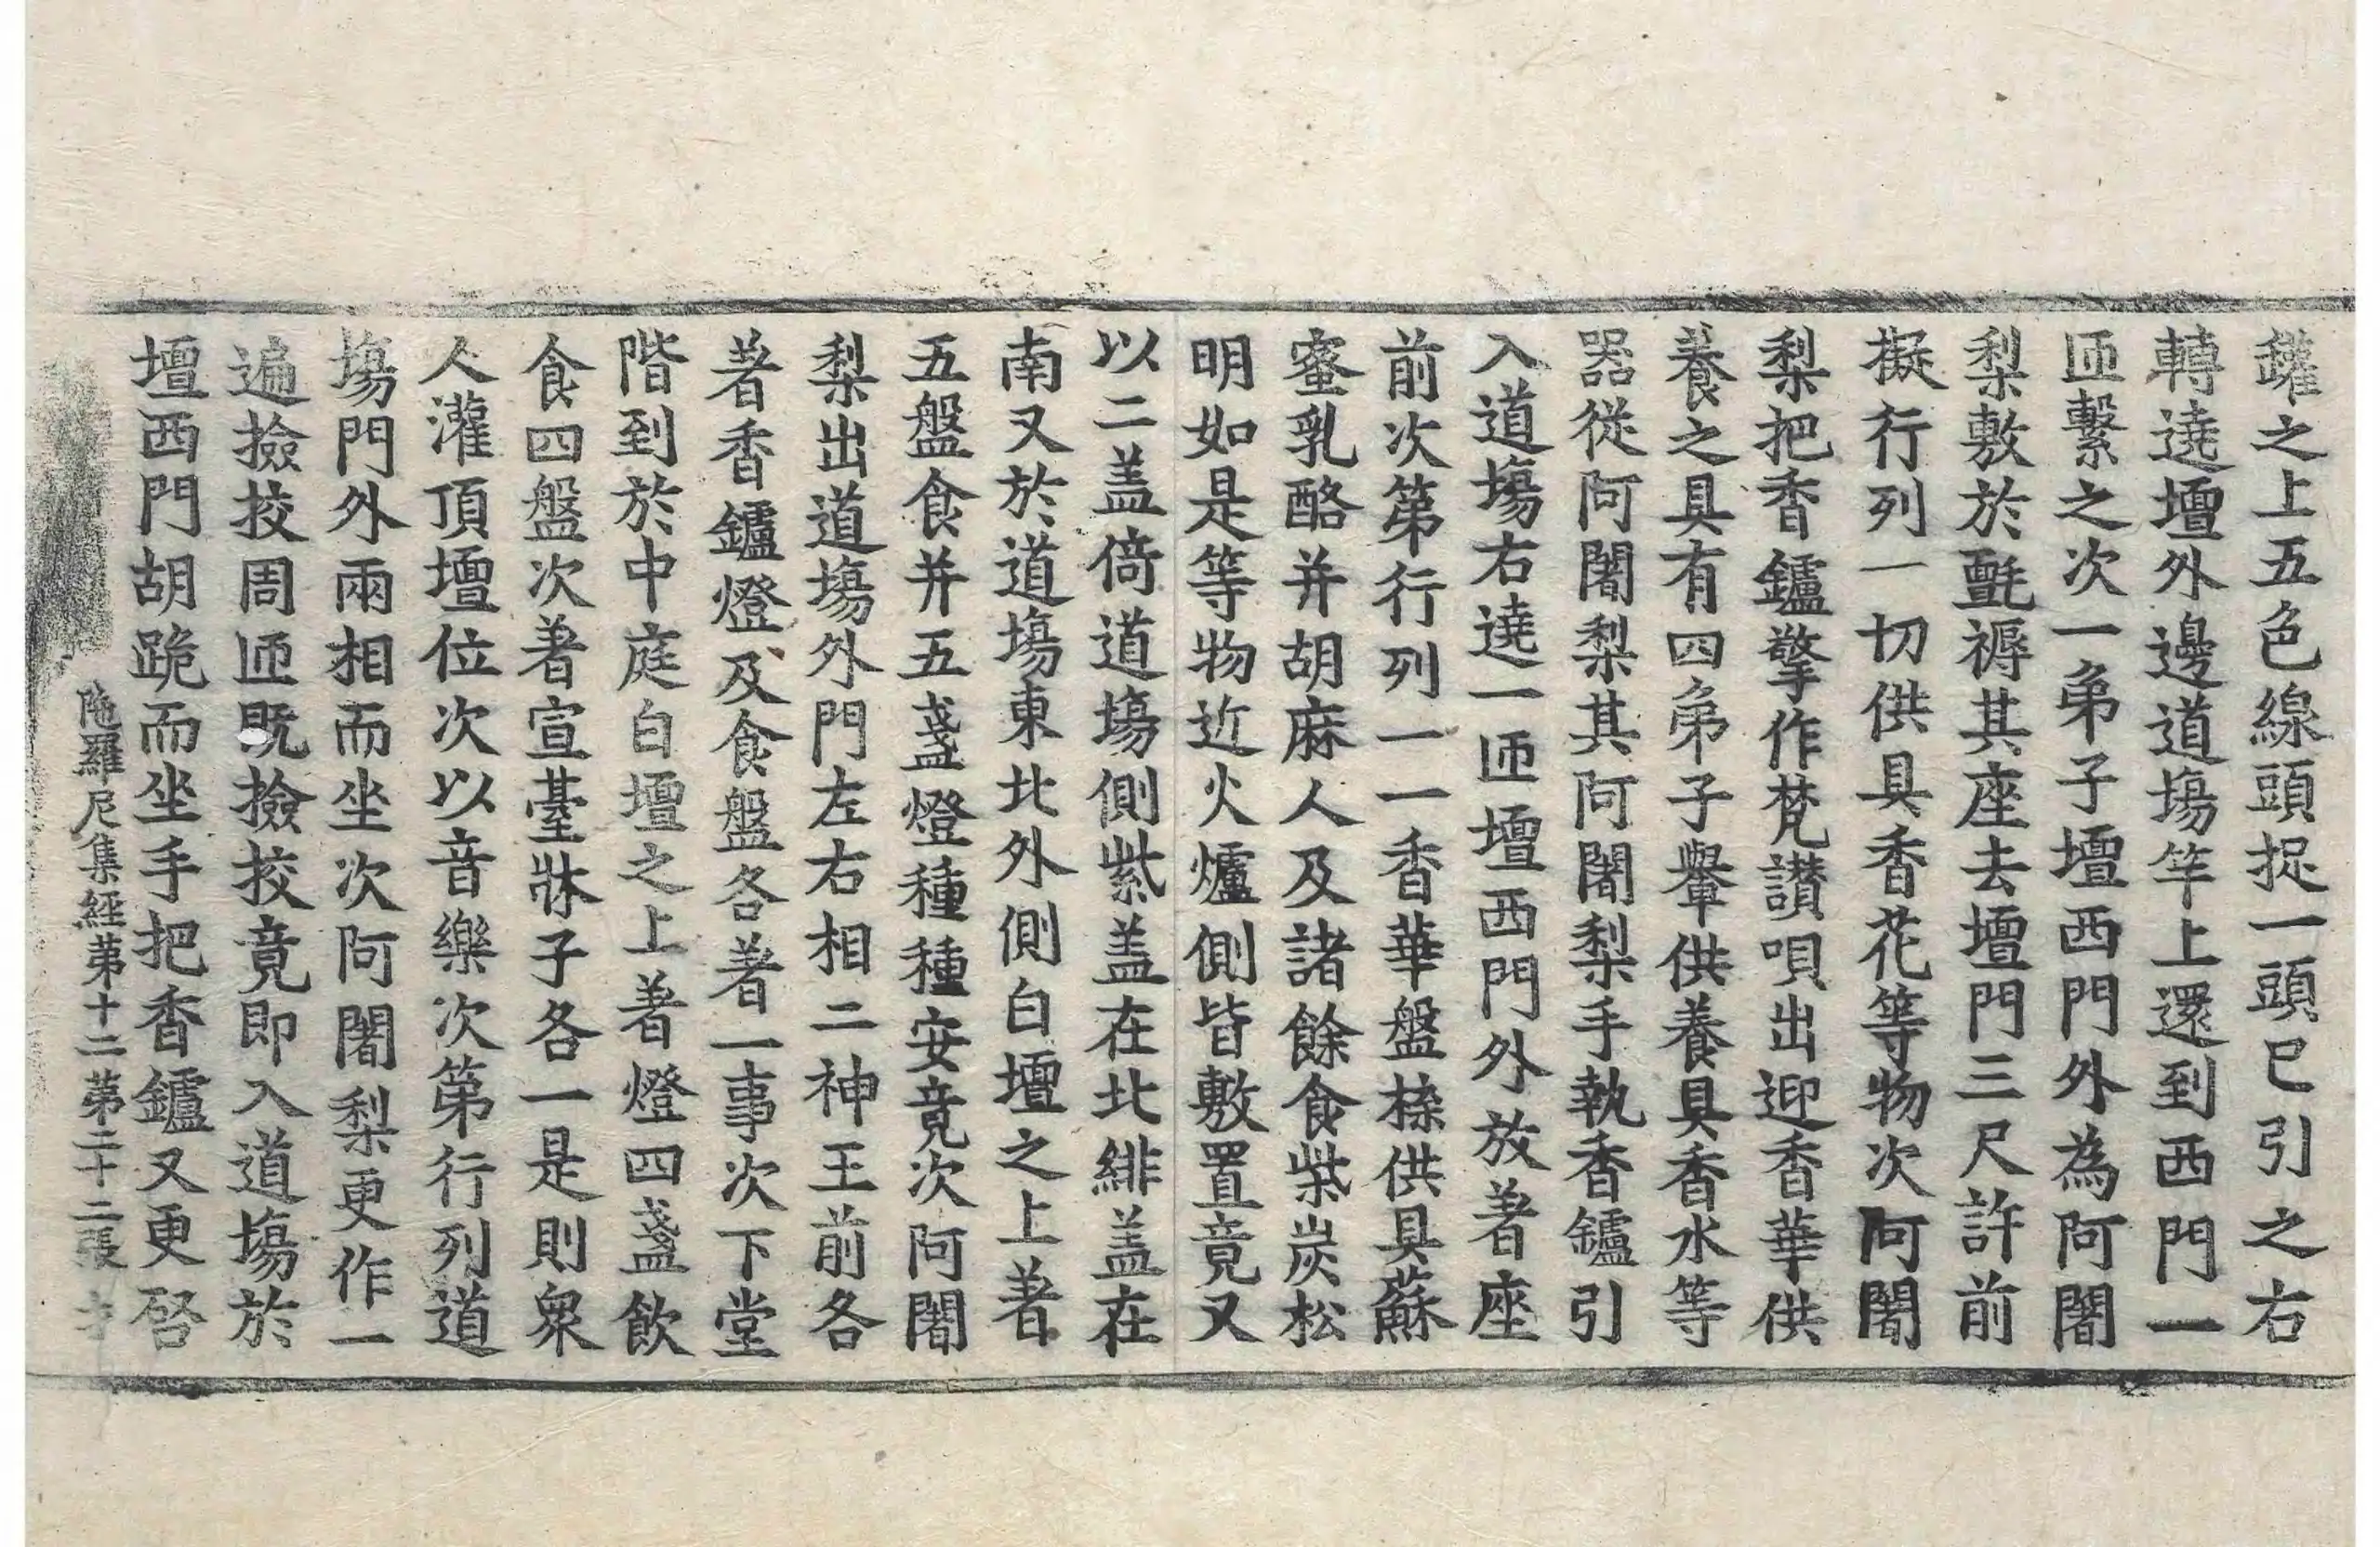 鑵之上五色線頭捉一頭已引之右
轉遶壇外邊道場竿上還到西門一
匝繫之次一弟子壇西門外為阿闍
梨敷於氈褥其座去壇門三尺許前
擬行列一切供具香花等物次阿闍
梨把香鑪擎作梵讃唄出迎香華供
養之具有四弟子轝供養具香水等
器從阿闍梨其阿闍梨手執香鑪引
入道場右遶一匝壇西門外放著座
前次第行列一一香華盤檪供具蘇
蜜乳酪并胡麻人及諸餘食柴炭松
明如是等物近火爐側皆敷置竟又
以二盖倚道場側紫盖在北緋盖在
南又於道場東北外側白壇之上著
五盤食并五盞燈種種安竟次阿闍
梨出道場外門左右相二神王前各
著香鑪燈及食盤各著一事次下堂
階到於中庭白壇之上著燈四盞飲
食四盤次著宣臺牀子各一是則衆
人灌頂壇位次以音樂次第行列道
場門外兩相而坐次阿闍梨更作一
遍撿挍周匝既撿挍竟即入道場於
壇西門胡跪而坐手把香鑪又更啓
陁羅尼集經苐十二苐二十二張